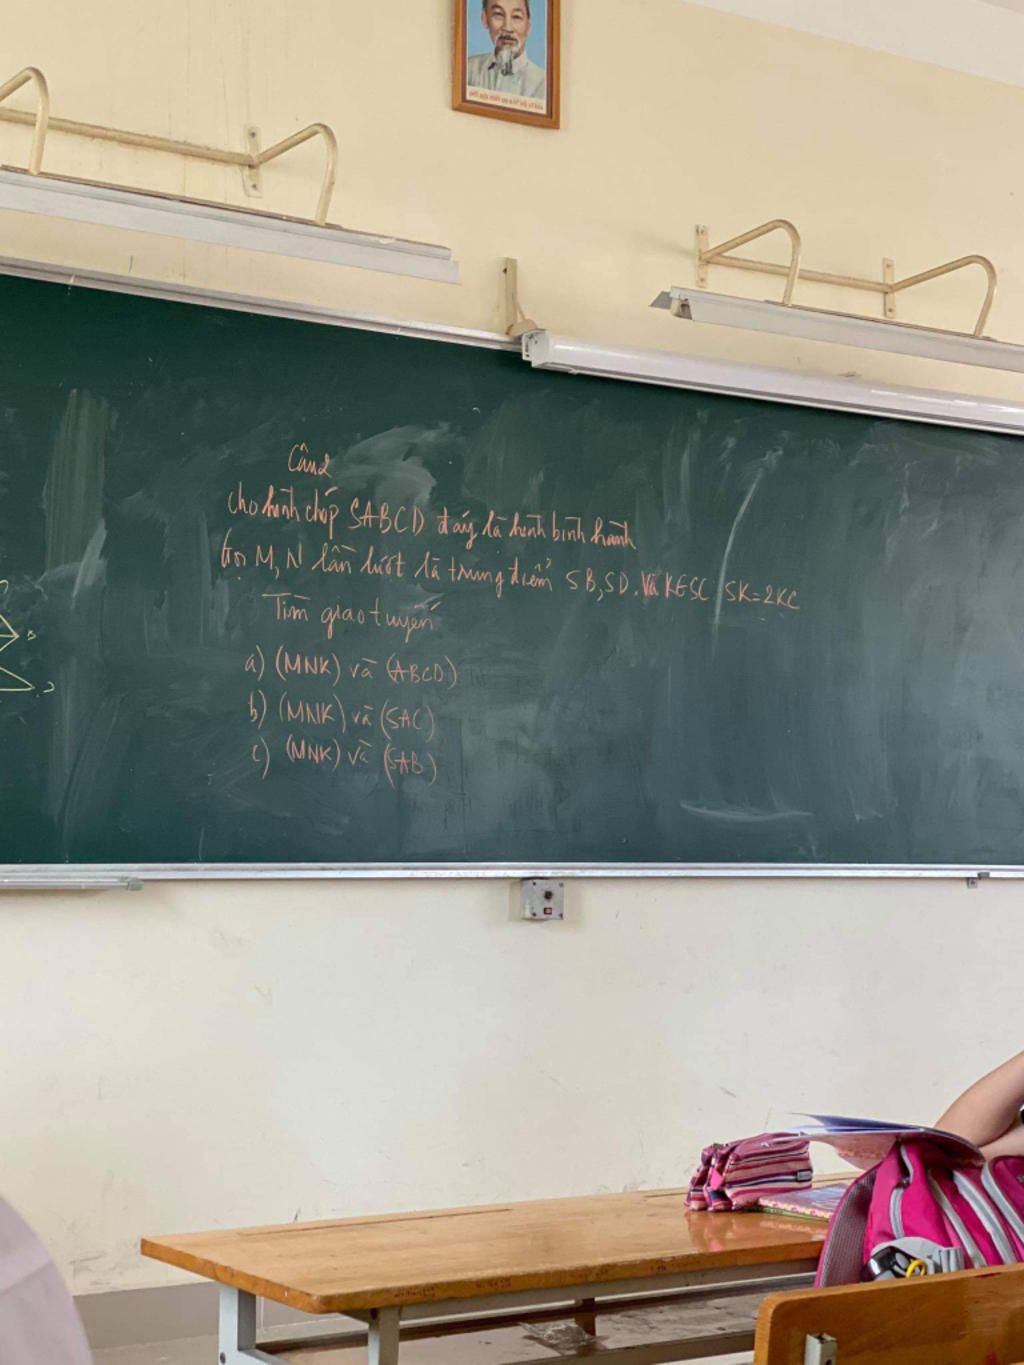 Câu 2
cho hình chóp SABCD đáy là hình bình hành
Gọi M, N lần lượt là trung điểm SB, SD. Và K∈SC SK=2KC
Tìm giao tuyến
a) (MNK) và (ABCD).
b) (MNK) và (SAC)
c) (MNK) và (SAB)